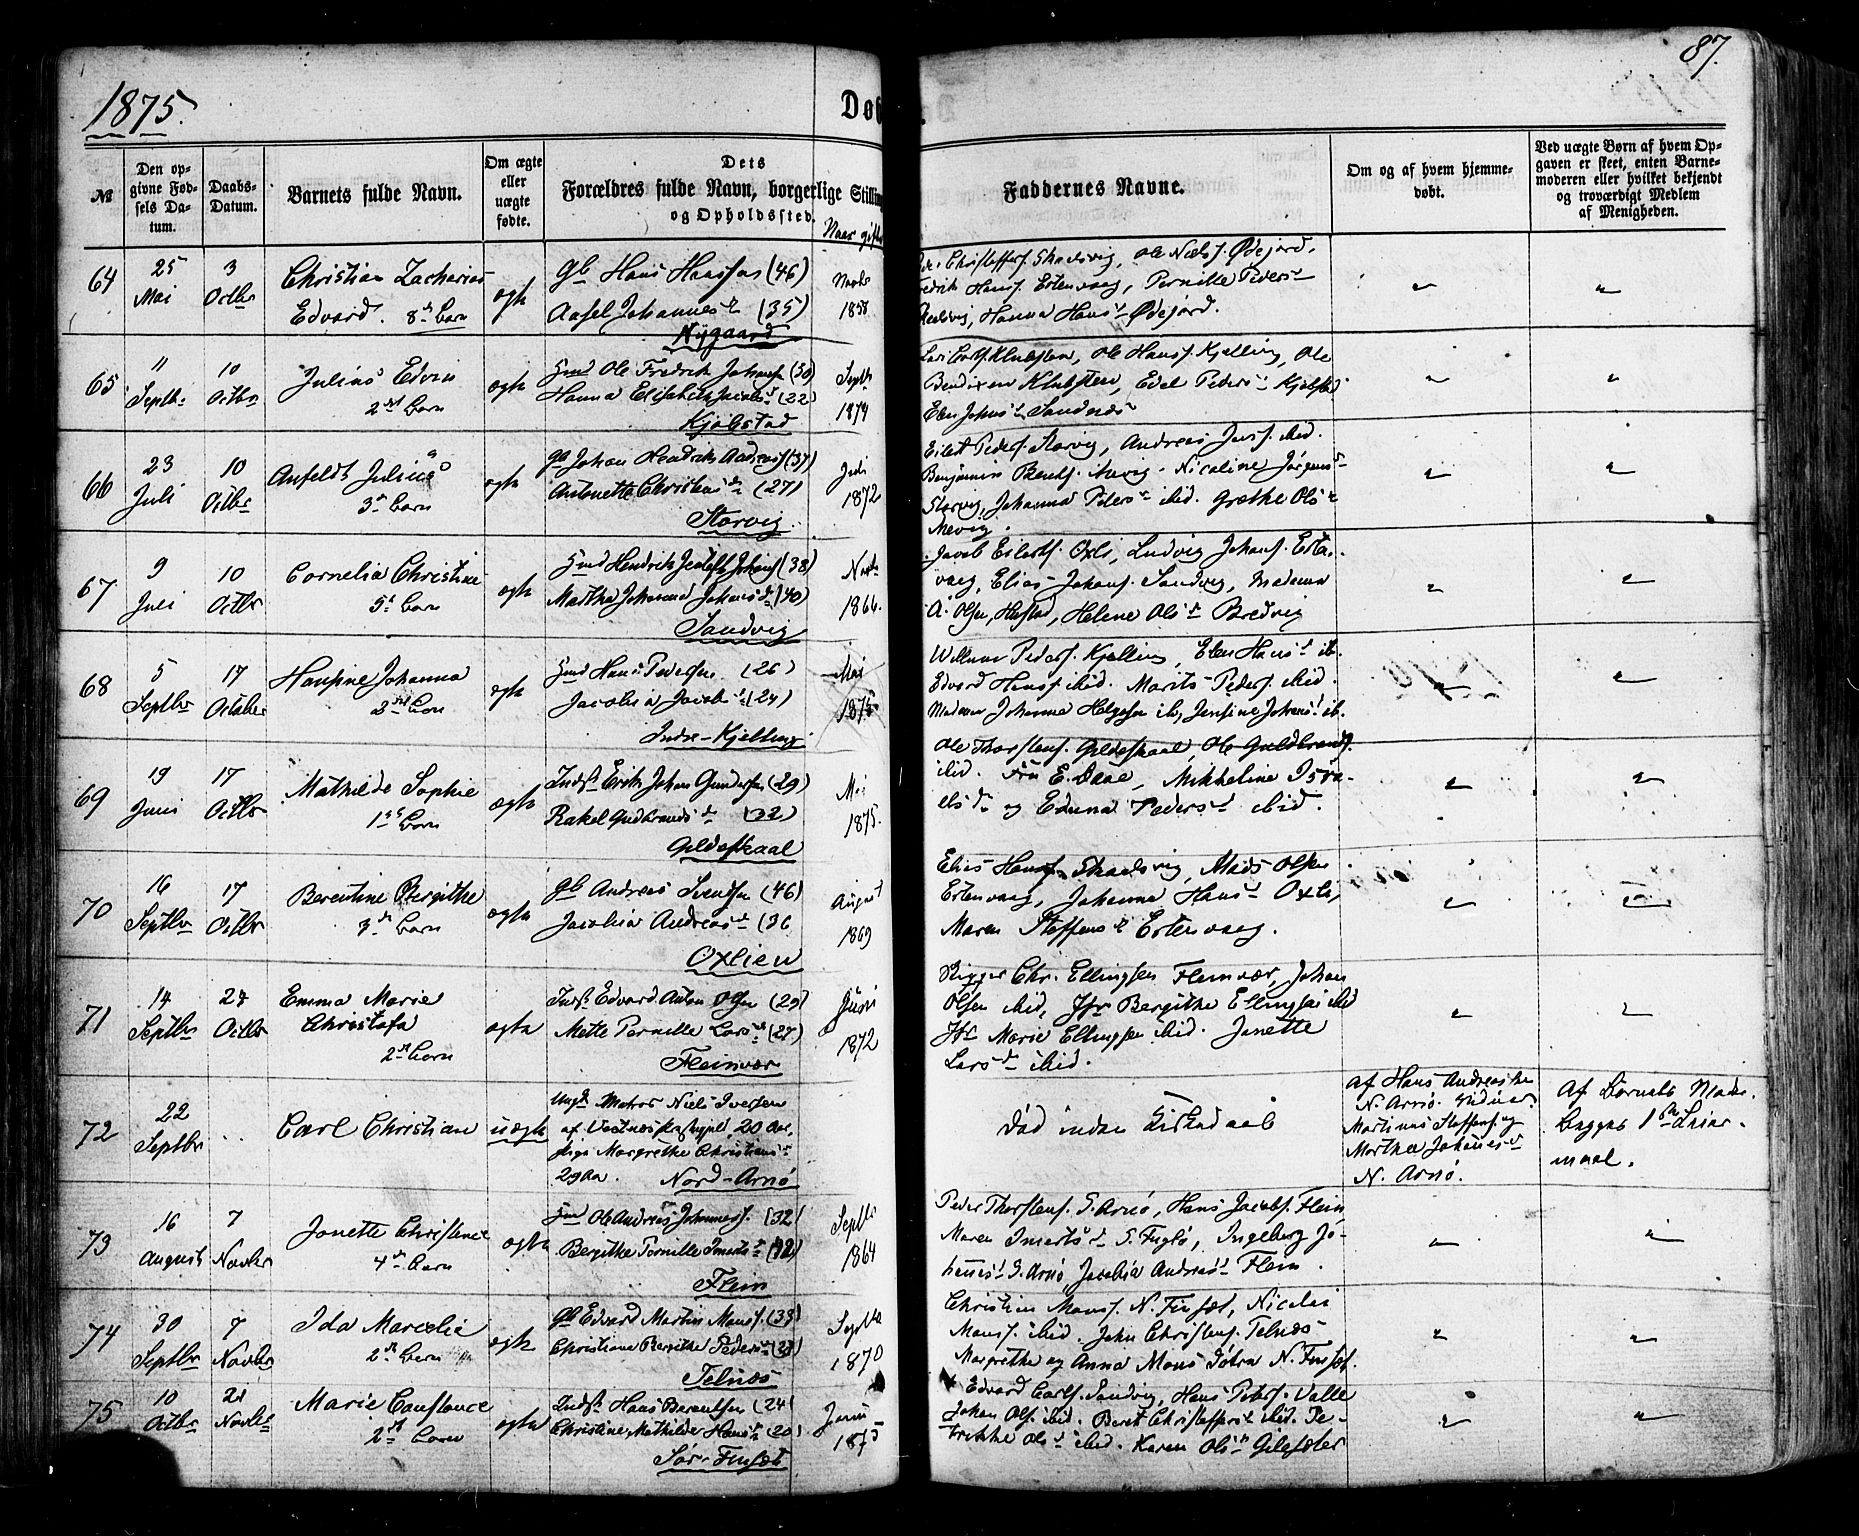 87.
1875.
Døb
№
Den opgivne Fødsels Datum.
Daabs-Datum.
Barnets fulde Navn.
Om ægte eller uægte fødte.
Dets Forældres fulde Navn, borgerlige Stilling og Opholdssted.
Naar gifte
Faddernes Navne.
Om og af hvem hjemmedøbt.
Ved uægte Børn af hvem Opgaven er skeet, enten Barnemoderen eller hvilket bekjendt og troværdigt Medlem af Menigheden.
64
25 Mai
3 Octbr
Christian Zacharias
Edvard. 8de barn
ægte
Gb Hans Hanssen (46)
Aasel Johannesd (35)
Nygaard
1858
Christoffers. Skaelsvig, Ole Niels. Ødejord.
Fredrik Hans. Ertenvaag, Pernille Pedersd
Hanna Hansd Ødejord.
65
" Septbr
10 Octbr
Julius Edvin
2det barn
ægte
Gmd Ole Fredrik Johans. (30)
Hanna Elisabeth Jacobsd (22)
Kjøbstad
Septbr 1874
Klubsten, Ole Hans. Kjelling, Ole
Bendixen Klubsten, Edel Pedersd Kjøbstad
Elen Johnsd Sandnæs
66
23 Juli
10 Octbr
Anfeldt Julius
3de barn
ægte
Gb Johan Hendrik Andreas. (37)
Antonette Christensd (27)
Storvig
Juli 1872
Eilert Peders. Storvig, Andreas Jens. ibid.
Benjamin Bents. Mevig. Nicoline Jørgensd
Storvig, Johanna Pedersd ibid. Grethe Olsd
Mevig.
67
9 Juli
10 Octbr
Cornelia Christine
5te barn
ægte
Gmd Hendrik Johans. (38)
Martha Johanna Johansd (40)
Sandvig
Novbr 1866.
Jacob Eilerts. Oxli, Ludvig Johans. Erten-
vaag, Elias Johans. Sandvig, Madame
A. Olsen, Høstad, Helene Olsd Bredvig
68
5 Septbr
17 October
Hansine Johanna
2det barn
ægte
Gmd Hans Pedersen (26)
Jacobia Jacobsd (24)
Indre-Kjelling
Mai 1875
Willum Peders. Kjelling, Elen Hansd ib.
Edvard Hans. ibid. Marits Peders. ibid.
Madam Johanna Helgesen ib, Jensine Johansd ib.
69
19 Juni
17 Octbr
Mathilde Sophie
1ste barn
ægte
Indst Erik Johan Gundersen (29)
Rakel Gudbrandsd (32)
Gildeskaal
Mai 1875.
Ole Thorstens. Gildeskaal, Ole Guldbrands.
ibid. Fru E. Daae, Mikkeline Isra-
elsd og Edina Pedersd ibid.
70
16 Septbr
17 Octbr
Berentine Birgithe
3de barn
ægte
Gb Andreas Svendsen (46)
Jacobia Andreasd (36
Oxlien
August 1869
Elias Hans. Skaalsvig, Mads Olsen
Ertenvaag, Johanna Hansd Oxli,
Maren Steffensd Ertenvaag.
71
14 Septbr
24 Octbr
Emma Marie
Christofa
2det barn
ægte
Indst Edvard Anton Olsen (29)
Mette Pernille Larsd (27)
Fleinvær
Juni 1872
Skipper Chr. Ellingsen Fleinvær, Johan
Olsen ibid, Jfr Bergithe Ellingsen ibid
Jfr Marie Ellingsen ibid. Janette
Larsd ibid.
72
22 Septbr
Carl Christian
uægte
Ungk Matros Niels Iversen
af Vestnæs Præstegjeld, 20 Aar,
pige Margrethe Christiansd
29 Aar. Nord-Arnø
Død inden Kirkedaab
af Hans Andreas
N. Arnø. Vidner.
Martinus Steffens. og
Martha Johannesd
N. Arnø.
Af Barnets Moder.
Begges 1ste Leier-
maal.
73
16 August
7 Novbr
Jonette Christence
4de barn
ægte
Gmd Ole Andreas Johannes. (32)
Bergithe Pernille Imertsd (32)
Flein
Septbr 1864
Peder Thorstens. S. Arnø, Hans Jacobs. Flein
Maren Imertsd S. Fuglø, Ingeberg Jo-
hannesd S. Arnø, Jacobia Andreasd Flein.
74
30 Septbr
7 Novbr
Ida Marcelie
2det barn
ægte
Gb Edvard Martin Mons. (33)
Christiane Bergithe Pedersd (23)
Telnæs
Septbr 1870
Christian Mons. N. Finset, Nicolai
Mons. ibid. John Christens. Telnæs
Margrethe og Anna Mons Døtre N. Finset.
75
10 Octbr
21 Novbr
Marie Constance
2det barn
ægte
Indst Hans Berentsen (24)
Christine Mathilde Hansd (20)
Sør-Finset
Juni 1873
Edvard Carls. Sandvig, Hans Peters. Valle
Johan Ols. ibid. Beret Christoffersd ibid. Pe-
trikke Olsd ibid. Karen Olsd Gilesæter